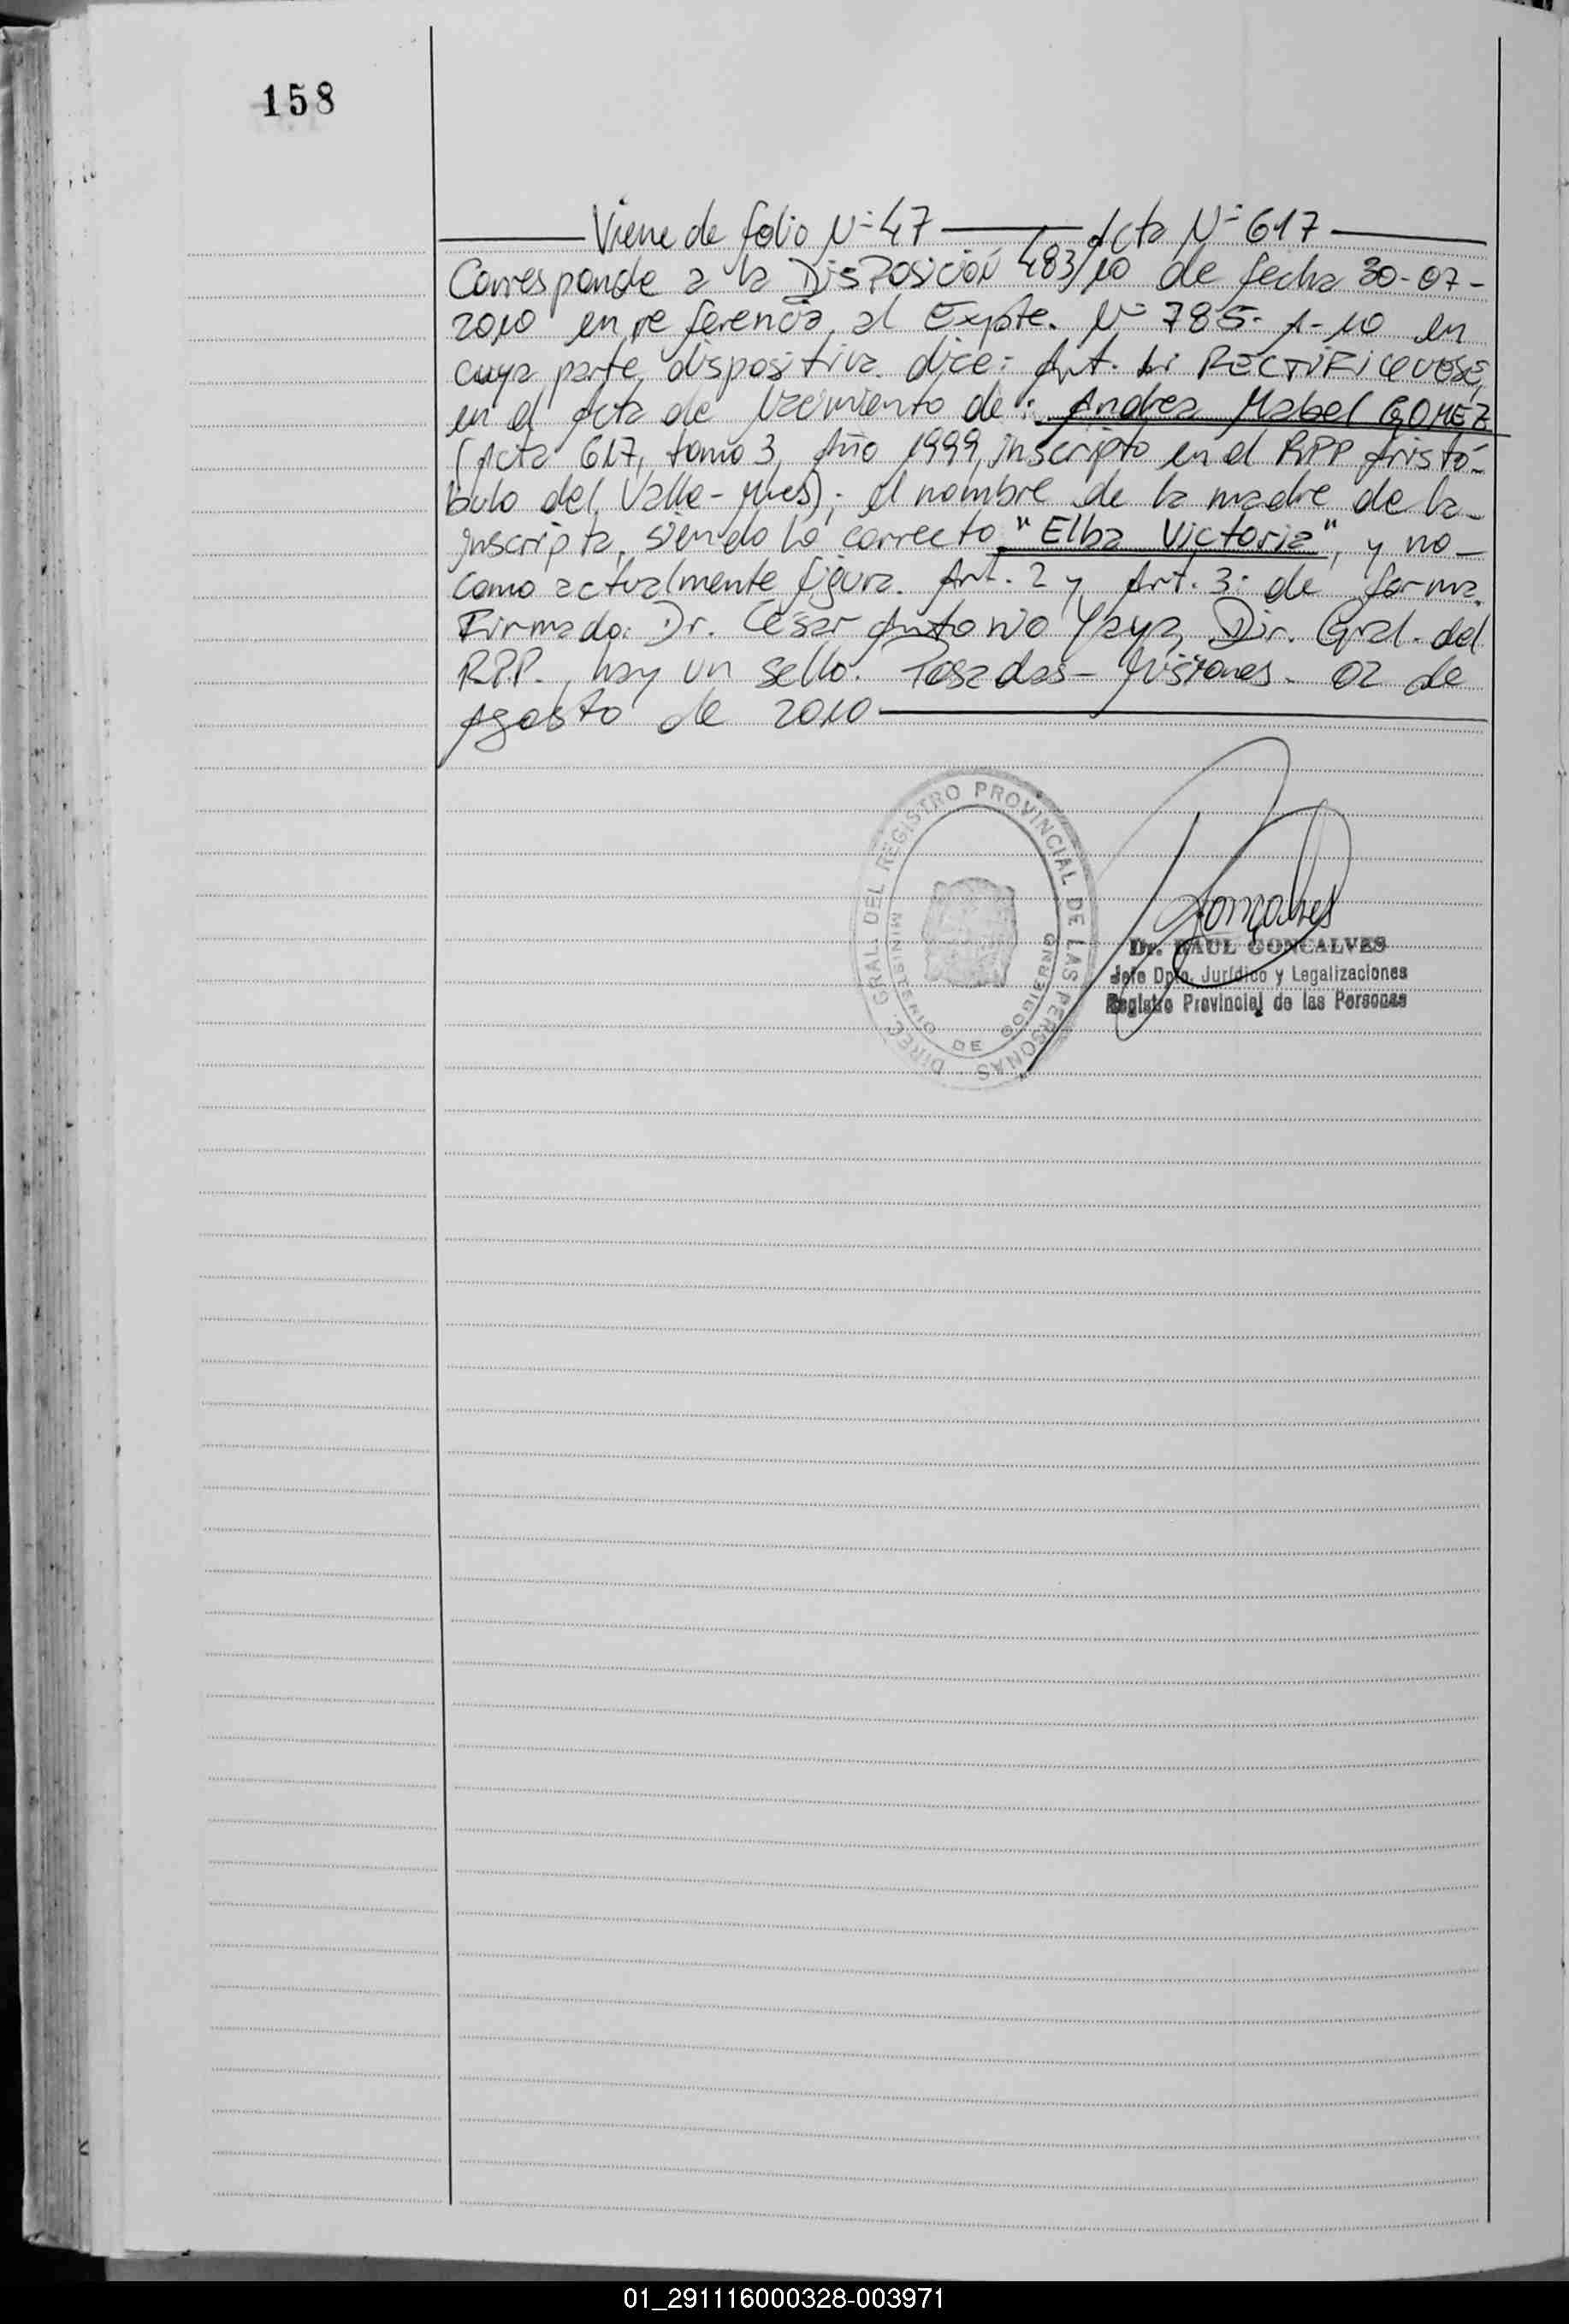 158
Viene de folio Nº 47 Acta Nº 617
Corresponde a la DisPosicioń 483/10 de fecha 30-07-
2010 en referencia al Expte. Nº 785-1-10 en
cuya parte dispositiva dice: Art. 1: RECTIFIQUESE,
en el Acta de Nacimiento de: Andrea Mabel GOMEZ
(Acta 617, tomo 3, Año 1999, inscripto en el RPP Aristó-
bulo del Valle - Mnes); el nombre de la madre de la-
inscripta, siendo lo correcto "Elba Victoria", y no-
como actualmente figura. Art. 2 y Art. 3: de forma.
Firmado: Dr. Cesar Antonio Yaya, Dir. Gral. del
RPP., hay un sello. Posadas - Misiones. 02 de
Agosto de 2010
DIREC. GRAL. DEL REGISTRO PROVINCIAL DE LAS PERSONAS
MINISTERIO DE GOBIERNO
Gonçalves
Dr. RAUL GONCALVES
Jefe Dpto. Jurídico y Legalizaciones
Registro Provincial de las Personas
01_291116000328-003971